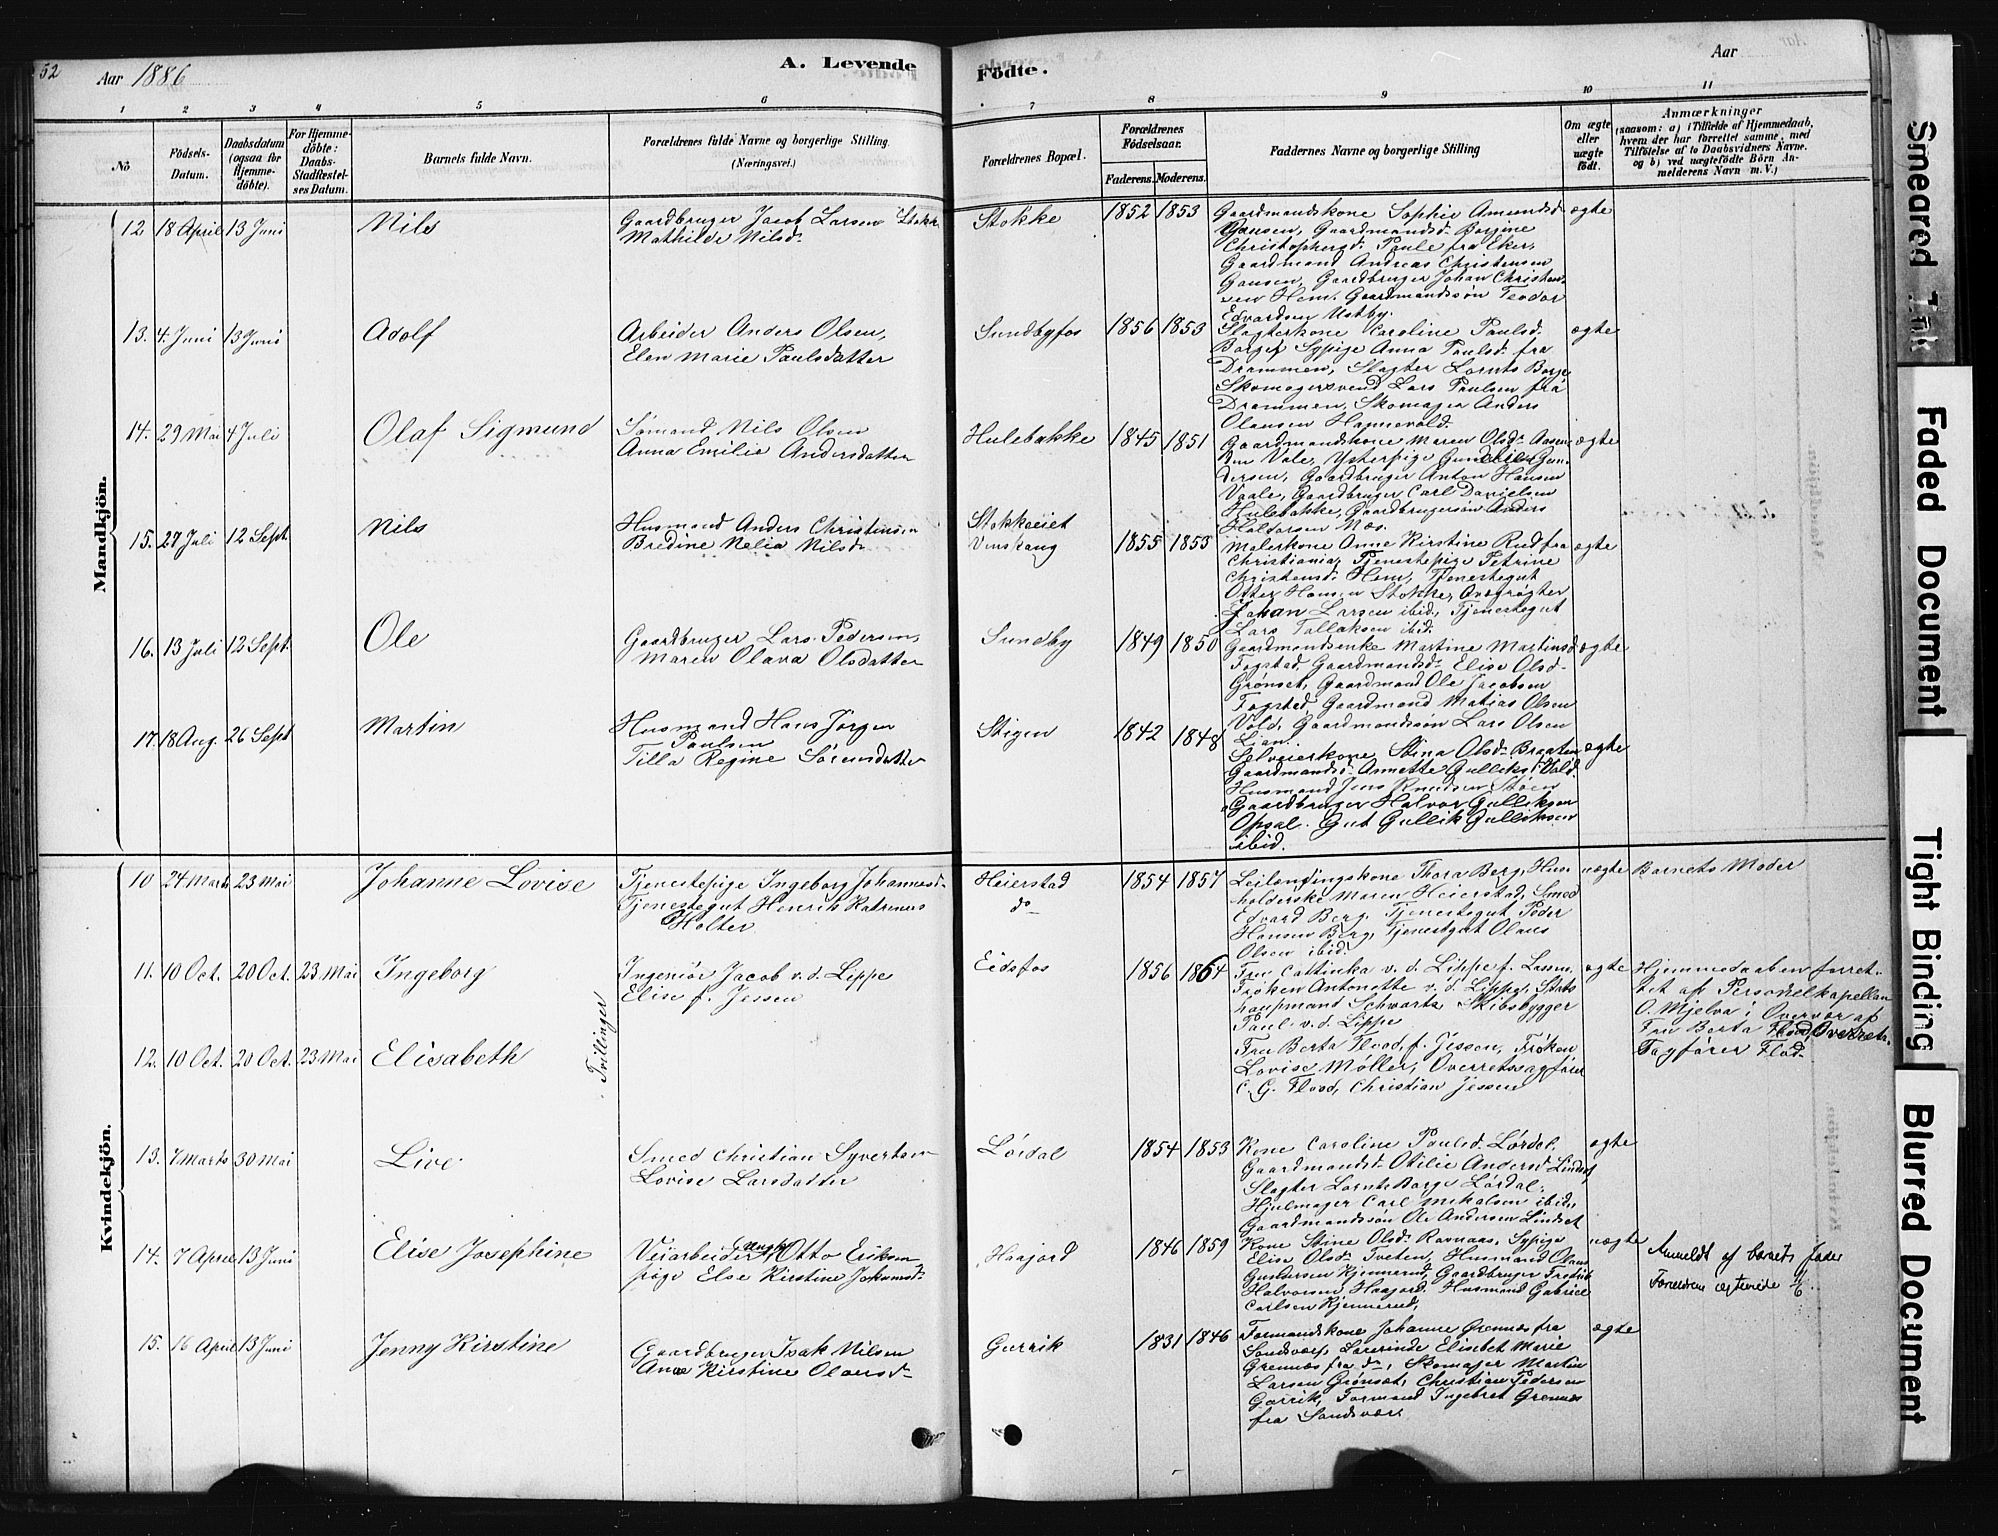 52
Aar 1886
A. Levende
Födte.
Aar
1
2
3
4
5
6
7
8
9
10
11
Nö
Födsels-
Datum.
Daabsdatum
(ogsaa for
Hjemme-
döbte).
For Hjemme-
döbte:
Daabs-
Stadfæstel-
ses Datum.
Barnets fulde Navn.
Forældrenes fulde Navne og borgerlige Stilling.
(Næringsvei.)
Forældrenes Bopæl.
Forældrenes
Födselsaar.
Faderens. Moderens.
Faddernes Navne og borgerlige Stilling
Om ægte
eller
uægte
födt.
Anmærkninger
(saasom: a) i Tilfælde af Hjemmedaab,
hvem der har forrettet samme, med
Tilföielse af to Daabsvidners Navne.
og b) ved uægtefödte Börn An-
melderens Navn m. V.)
Mandkjön.
12 18 April 13 Juni
Nils
Gaardbruger Jacob Larsen Stokke
Mathilde Nilsd.
Stokke
1852 1853
Gaardmandskone Sophie Amundsd
Gausen, Gaardmandsd. Borgine
Christophersd. Paule fra Eker,
Gaardmand Andreas Christensen
Gausen, Gaardbruger Johan Christen-
sen Hem. Gaardmandssøn Teodor
Edvardsen Ustby.
ægte
13. 4. Juni 13 Juni
Adolf
Arbeider Anders Olsen,
Elen Marie Paulsdatter
Sundbyfos
1856 1853
Slagterkone Caroline Paulsd.
Borge, Sypige Anna Paulsd. fra
Drammen, Slagter Lornts Borge
Skomagersvend Lars Paulsen fra
Drammen, Skomager Anders
Olausen Hamsevold.
ægte
14. 29 Mai 4 Juli
Olaf Sigmund
Sømand Nils Olsen
Anna Emilie Andersdatter
Hulebakke
1845 1851
Gaardmandskone Maren Olsd. Aasen-
den Vale, Ysterpige Gun
dersen, Gaardbruger Anton Hansen
Vaale, Gaardbruger Carl Danielsen
Hulebakke, Gaardbrugersøn Anders
Haldorsen Næs.
ægte
15. 27 Juli 12 Sept.
Nils
Husmand Anders Christensen
Bredine Nelia Nilsd.
Stokkeeiet
1855 1853
Malerkone Anne Kirstine Rud fra
Christiania, Tjenestepige Petrine
Christensd. Hem, Tjenestegut
Otter Hansen Stokke,
Johan Larsen ibid, Tjenestegut
Lars Tollaksen ibid.
ægte
16. 13 Juli 12 Sept.
Ole
Gaardbruger Lars Pedersen,
Maren Olava Olsdatter
Sundby
1849 1850
Gaardmandsenke Martine Martinsd
Fogstad, Gaardmandsd. Elise Olsd.
Grønset, Gaardmand Ole Jacobsen
Fogstad, Gaardmand Matias Olsen
Vold, Gaardmandssøn Lars Olsen
Lian.
ægte
17. 18 Aug. 26 Sept
Martin
Husmand Hans Jørgen
Paulsen
Tilla Regine Sørensdatter
Stigen
1842 1848
Selveierkone Stina Olsd. Braaten
Gaardmandsd. Annette Gulliksd. Vold.
Husmand Jens Knudsen Støen
Gaardbruger Halvor Gulliksen
Opsal. Gut Gullik Gulliksen
ibid.
ægte
Kvindekjön.
10 24 Marts 23 Mai
Johanne Lovise
Tjenestepige Ingeborg Johannesd.
Tjenestegut Henrik Katrenus
Holter
Heierstad
do
1854 1857
Leilændingskone Thora Berg, Hus-
holderske Maren Heierstad, Smed
Edvard Berg. Tjenestegut Peder
Hansen Berg, Tjenestegut Olaus
Olsen ibid.
uægte
Barnets Moder
11. 10 Oct. 20 Oct. 23 Mai
Ingeborg
Tvillinger
Ingeniør Jacob v. d. Lippe
Elise f. Jessen
Eidsfos
1856 1864
Fru Cattinka v. d. Lippe f. Lassen,
Frøken Antonette v. d. Lippe, Stats
haupmand Schwartz, Skibsbygger
Paul v. d. Lippe
ægte
Hjemmedaaben forret-
tet af Personelkapellan
O. Mjelva i Overvær af
Fru Berta Flod, Overrets-
sagfører Flod.
12. 10 Oct. 20 Oct. 23 Mai
Elisabeth
Fru Berta Flood, f. Jessen, Frøken
Lovise Møller, Overretssagfører
C. G. Flood, Christian Jessen
13. 7 Marts 30 Mai
Live
Smed Christian Syvertsen
Lovise Larsdatter
Lørdal
1854 1853
Kone Caroline Paulsd. Lørdal.
Gaardmandsd. Otilie Andersd Lindset
Slagter Lornts Borge Lørdal.
Hjulmager Carl Mikalsen ibid,
Gaardmandssøn Ole Andersen Lindset
ægte
14. 7 April 13 Juni
Elise Josephine
Veiarbeider, Ungk. Otto Eriksen
pige Else Kirstine Johansd.
Haajord
1846 1859
Kone Stine Olsd. Ravnaas, Sypige
Elise Olsd. Tveten, Husmand Olaus
Gundersen Kjennerud, Gaardbruger Fredrik
Halvorsen Haajord. Husmand Gabriel
Carlsen Kjennerud,
uægte
Anmeldt af barnets fader
Forældrene ægteviede
15. 16 April 13 Juni
Jenny Kirstine
Gaardbruger Isak Nilsen
Anne Kirstine Olausd.
Gurrik
1831 1846
Formandskone Johanne Grennes fra
Sandsvær, Lærerinde Elisbet Marie
Grennes fra do, Skomager Martin
Larsen Grønset, Christian Pedersen
Gurrik, Formand Ingebret Grennes
fra Sandsvær.
ægte
Smeared Ink
Faded Document
Tight Binding
Blurred Document